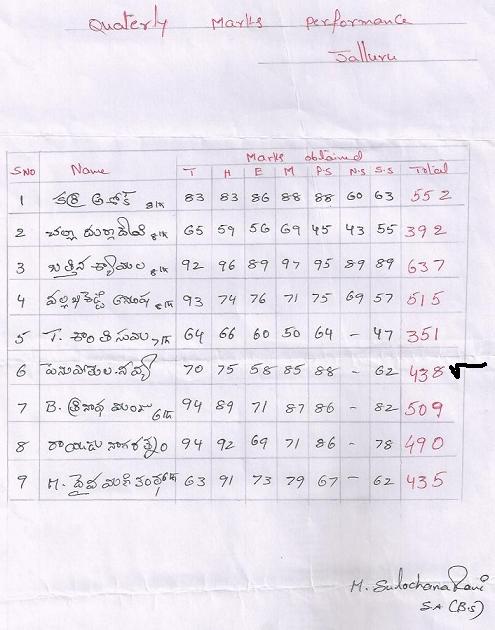 Quaterly Marks Performance
Jalluru
Marks obtained
SNO Name T H E M P.S N.S S.S Total
1 83 83 86 88 88 60 63 552
2 చల్లా 65 59 56 69 45 43 55 392
3 శ్యామల 92 96 89 97 95 89 89 637
4 93 74 76 71 75 69 57 515
5 T. శాంతి 64 66 60 50 64 - 47 351
6 70 75 58 85 88 - 62 438
7 B. 94 89 71 87 86 - 82 509
8 రాయుడు నాగరత్నం 94 92 69 71 86 - 78 490
9 M. 63 91 73 79 67 - 62 435
M. Sulochana Rani
S.A (B.S)